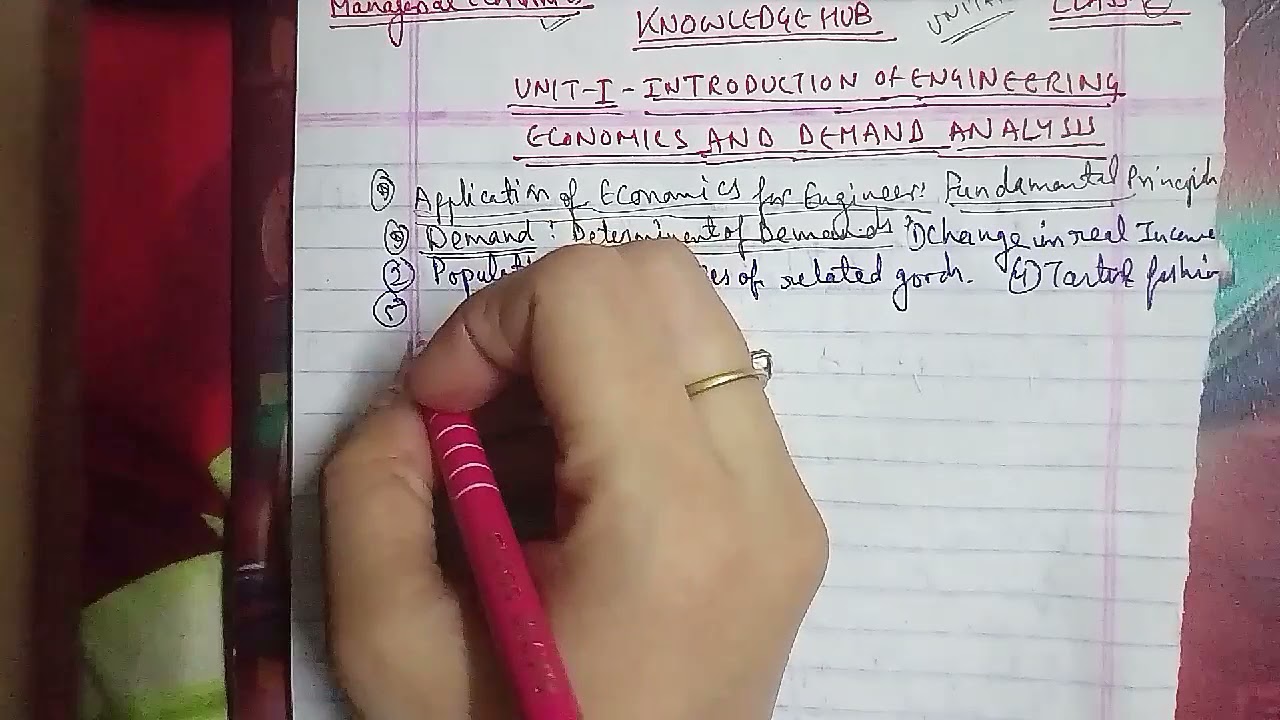 Managerial
KNOWLEDGE HUB
UNIT-I - INTRODUCTION Of ENGINEERING
ECONOMICS AND DEMAND ANALYSIS
Application of Economics for Engineer: Fundamental
Demand : Determinent of Demands 1) change in real Income
of related goods. (4)
5